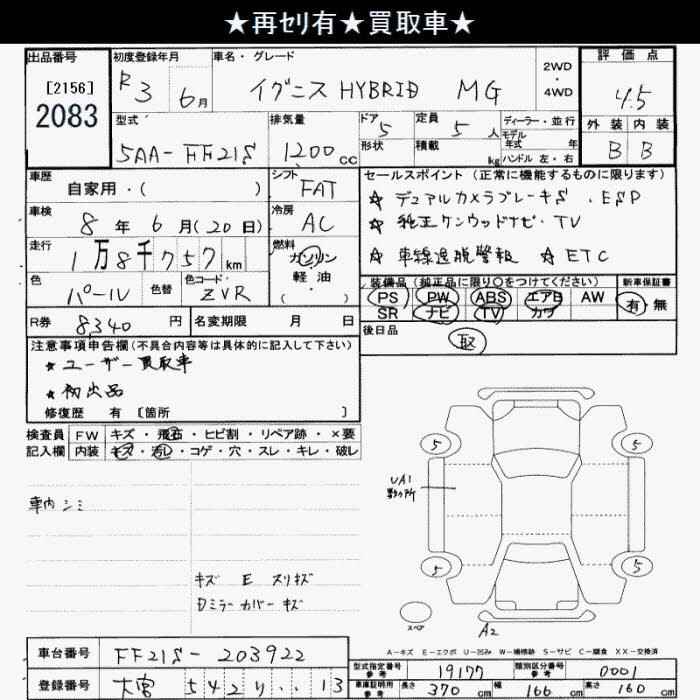 ★再セリ有★買取車★
出品番号 初度登録年月 車名・グレード 2WD・4WD 評価点
[2156]
2083
R3 6月 イグニス HYBRID MG 4.5
型式 排気量 ドア 5 定員 5人 ディーラー・並行 外装 内装
5AA-FF21S 1200cc 形状 積載 kg モデル年式 年 B B
ハンドル 左・右
車歴 自家用・( ) シフト FAT セールスポイント (正常に機能するものに限ります)
☆ デュアルカメラブレーキS・ESP
車検 8年6月(20日) 冷房 AC ☆ 純正ケンウッドナビ・TV
走行 1万8千757km 燃料 ガソリン・軽油・( ) ☆ 車線逸脱警報 ☆ ETC
色 パール 色替 色コード ZVR 装備品 (純正品に限り○をつけてください) 新車保証書
PS PW ABS エアB AW 有・無
SR ナビ TV カワ
R券 8340円 名変期限 月 日 後日品 取
注意事項申告欄 (不具合内容等は具体的に記入して下さい)
★ ユーザー買取車
★ 初出品
修復歴 有 [箇所 ]
検査員 FW キズ・飛石・ヒビ割・リペア跡・×要
記入欄 内装 キズ・汚レ・コゲ・穴・スレ・キレ・破レ
5 5
UA1
車内シミ
5 5
キズ E スリキズ
Dミラーカバーキズ
スペア
A2
A-キズ E-エクボ U-凹み W-補修跡 S-サビ C-腐食 XX-交換済
車台番号 FF21S-203922 型式指定番号 参考 19177 類別区分番号 参考 0001
登録番号 大宮 542 り ‥13 車庫証明用 参考 長さ 370cm 幅 166cm 高さ 160cm